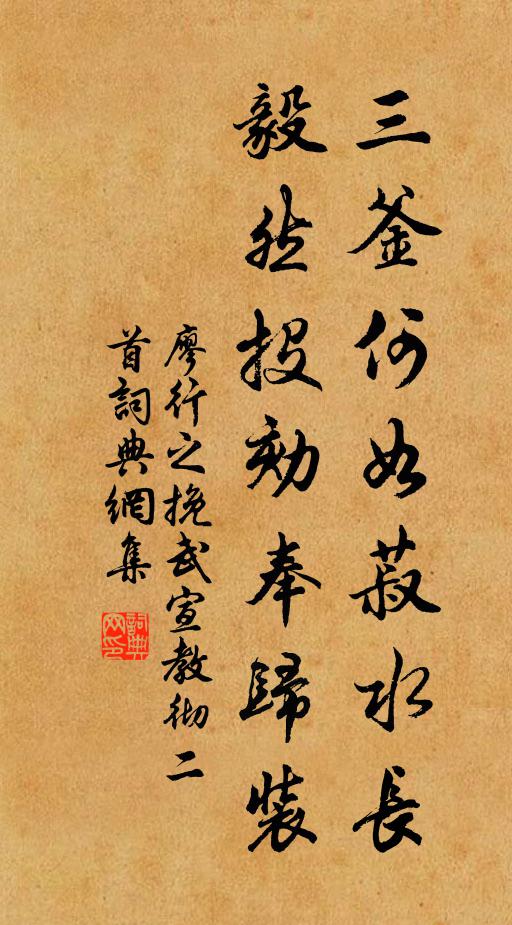 三釜何如菽水長
毅然投劾奉歸裝
廖行之挽武宣教彻二
首詞典網集
詞典网印